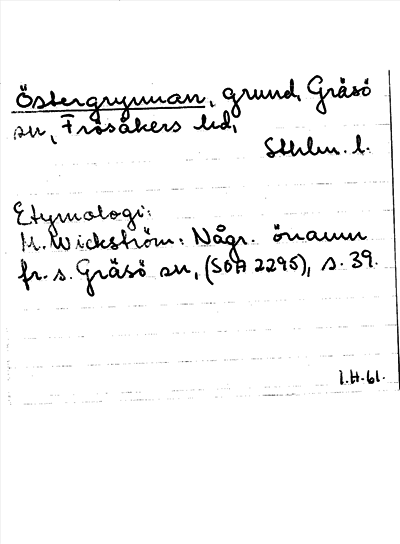 Östergrynnan, grund, Gräsö
sn, Frösåkers hd,
Sthlm. l.
Etymologi:
M. Wickström: Någr. önamn
fr. s. Gräsö sn, (SOA 2295), s. 39.
I.H. 61.